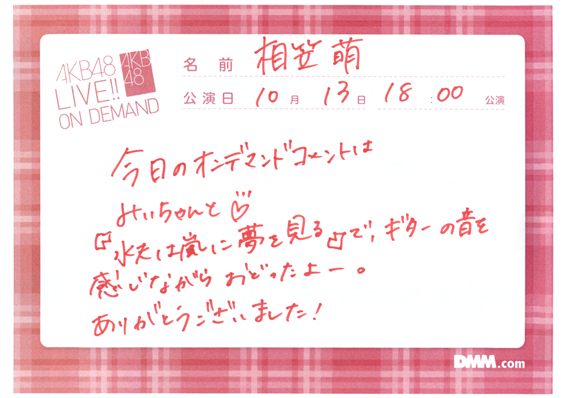 AKB48
LIVE!!
ON DEMAND
AKB
48
名前 相笠萌
公演日 10月 13日 18:00 公演
今日のオンデマンドコメントは
みいちゃんと♡
『水夫は嵐に夢を見る』で、ギターの音を
感じながら おどったよー。
ありがとうございました!
DMM.com